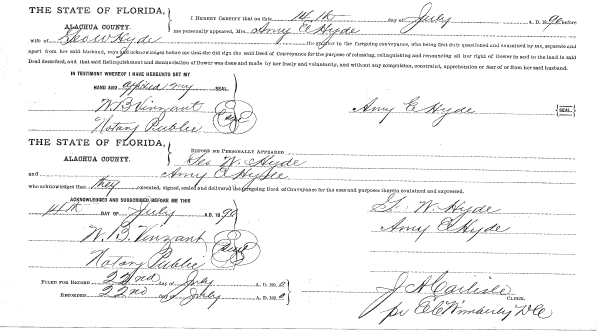 THE STATE OF FLORIDA,
ALACHUA COUNTY.
I HEREBY CERTIFY that on this 14th day of July A. D. 1890 before
me personally appeared, Mrs. Amy E Hyde
wife of Geo W Hyde the grantor in the foregoing conveyance, who being first duly questioned and examined by me, separate and
apart, from her said husband, says and acknowledges before me that she did sign the said Deed of Conveyance for the purpose of releasing, relinquishing and renouncing all her right of Dower in and to the land in said
Deed described, and that said Relinquishment and Renunciation of Dower was done and made by her freely and voluntarily, and without any compulsion, constraint, apprehension or fear of or from her said husband.
IN TESTIMONY WHEREOF I HAVE HEREUNTO SET MY
HAND AND affixed my SEAL.
W. B. Vinzant Seal Amy E Hyde {SEAL.}
Notary Public
THE STATE OF FLORIDA,
ALACHUA COUNTY.
BEFORE ME PERSONALLY APPEARED
Geo W. Hyde
and Amy E Hyde
who acknowledged that they executed, signed, sealed and delivered the foregoing Deed of Conveyance for the uses and purposes therein contained and expressed.
ACKNOWLEDGED AND SUBSCRIBED BEFORE ME THIS
14th DAY OF July A.D. 1890
W. B. Vinzant Seal
Notary Public
G. W. Hyde
Amy E Hyde
FILED FOR RECORD 22nd day of July A. D. 1890
RECORDED 22nd day of July A. D. 1890
J A Carlisle CLERK.
pr E C Wimberly D C